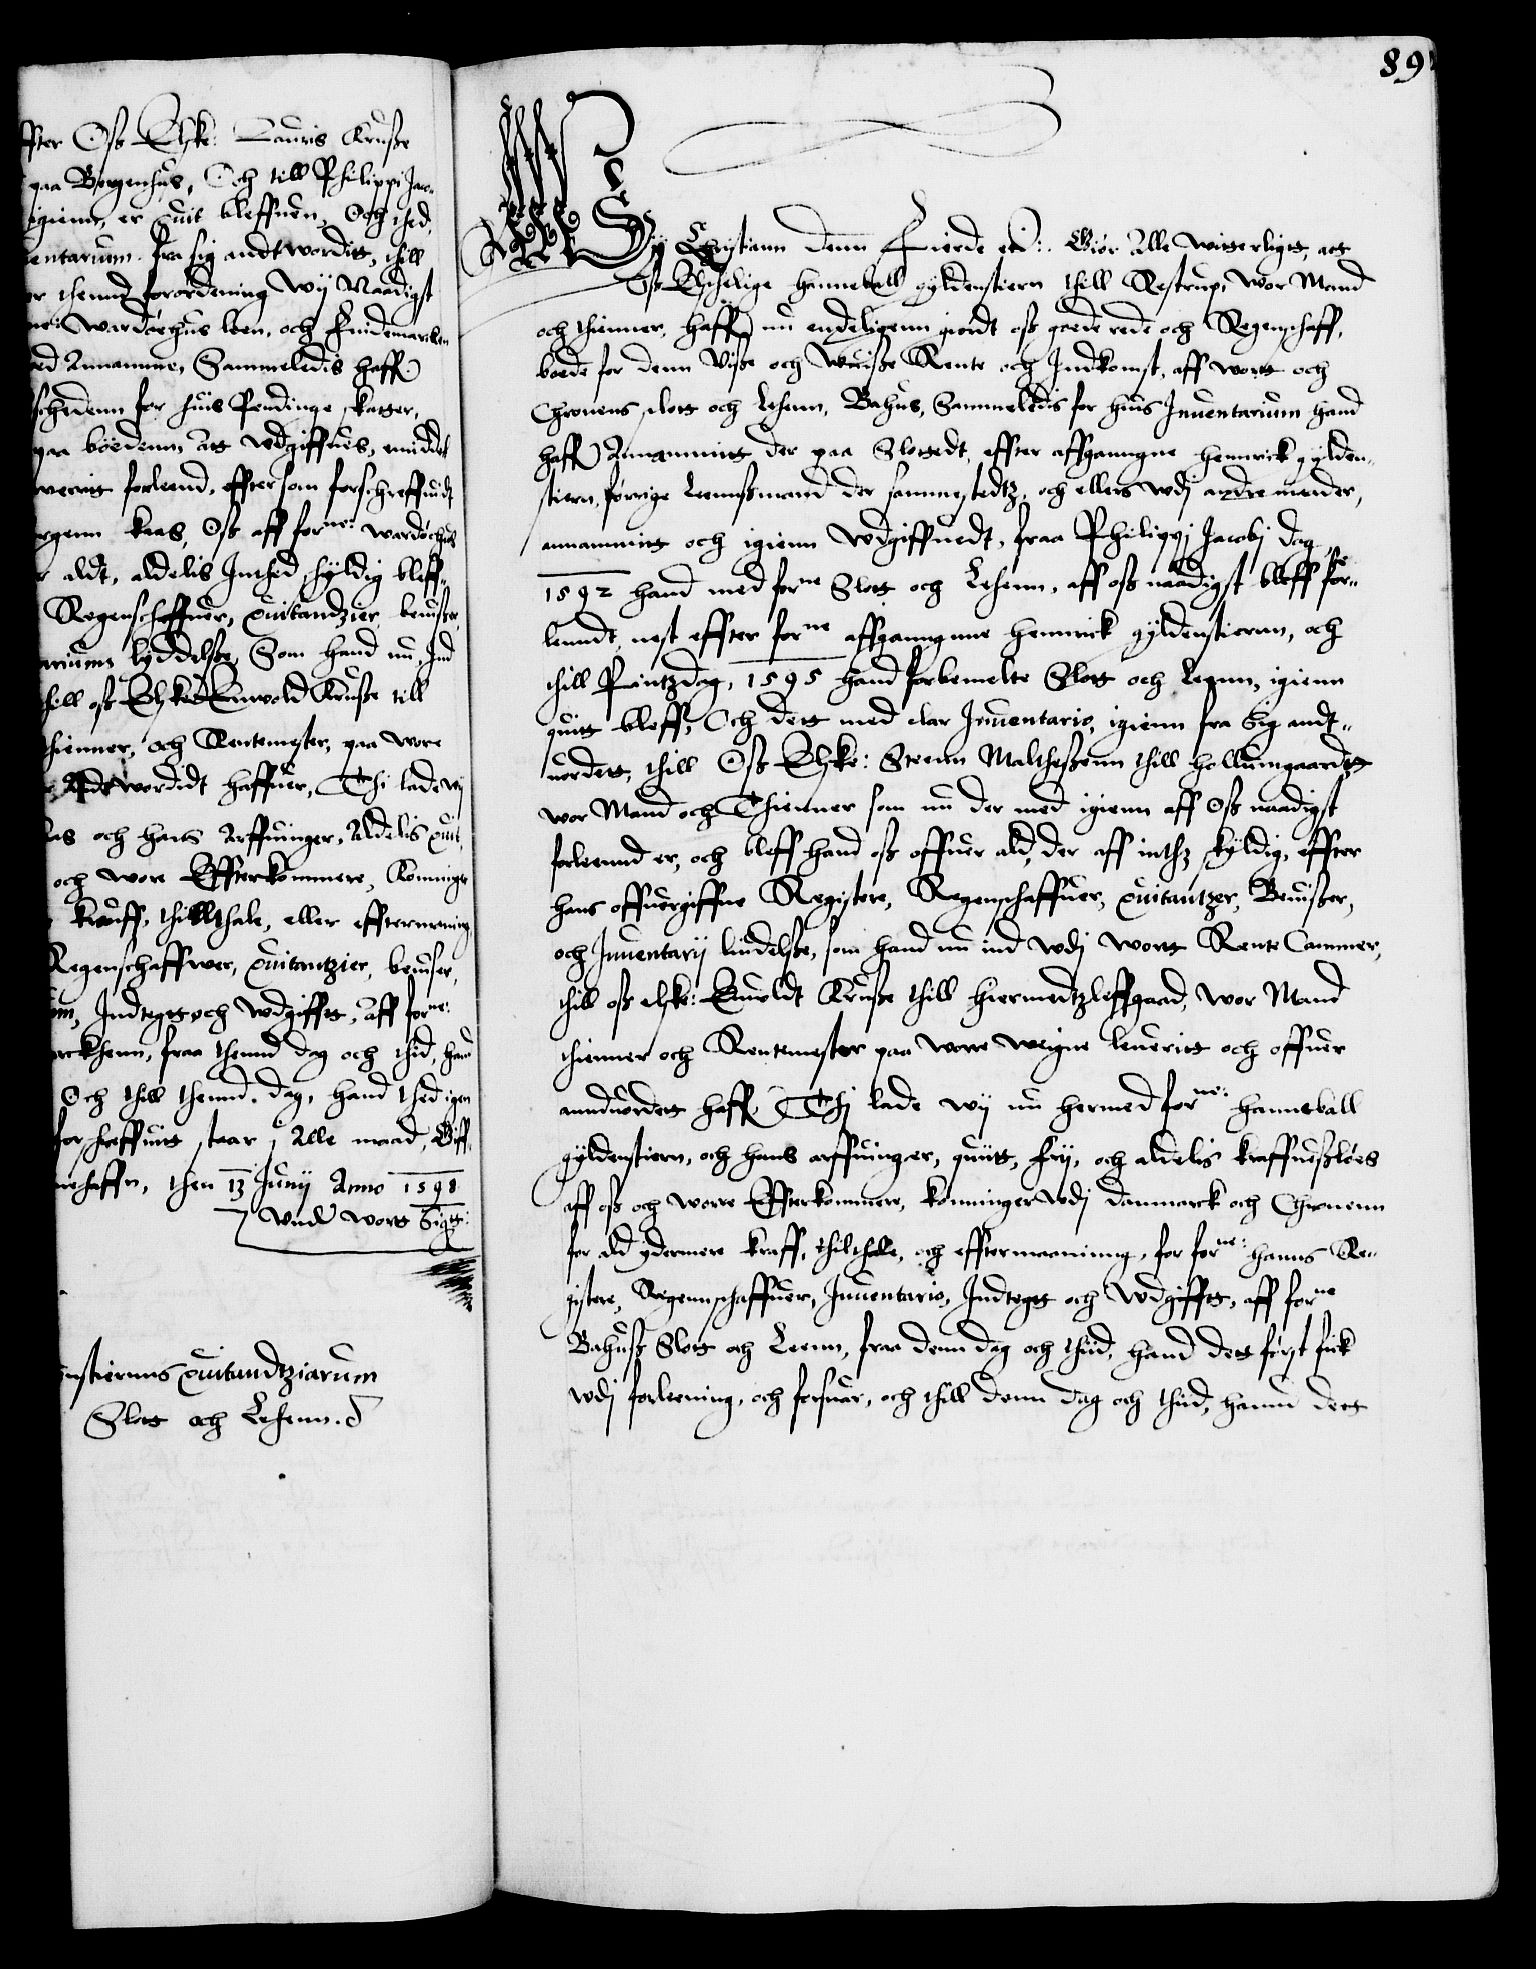 89
ffter Oß Elske: Lauris Kruße
paa Bergenhus, Och till Philippi Jaco-
igienn, er quit bleffuen, Och thed,
entarium fra sig andtwordit, thill
er thennd forordening Wij Naadigst
ne: Wardøehus leen, och Findemarcken
ed Annamme, Sammeledis haffr
schedenn for huis Pendinge, skatter,
paa bøedenn, Att wdgiffues, emidler
werit forlend, effter som forschreffuit
rgenn Kaas, Oß aff forne: Wardøehus
r aldt, aldelis Inthed skyldig bleff-
Regenschaffuer, quitandzier, beuißer,
arium lyddelße, Som hand nu, Ind
till oß Elske: Enwold Kruße till
thienner, och Rentemester, paa wore
Andtwordidt haffuer, Thi lade wij
as och hans Arffuinger, Aldelis quit,
och wore Effterkommere, Koninge
krauff, thilthale, eller efftermening
Regenschaffwer, quitantzier, beuißer,
m, Indtegt och Wdgifft, Aff forne:
arckhenn, fraa thennd dag och thid, hand
Och thill thennd dag, hand thed igen
forschreffuit staar i Alle maade, Giff.
nehaffn, then 13 Junij Anno 1598
Vnder wort Sigt:
nstierns quitandtziarum
Slott och Lehenn.
Wij Christiann denn Fierde etc: Giør Alle witterligt, att
Oß Elschelige Hanneball gyldenstiern thill Restrup, Wor Mand
och thienner, haffr nu endeligenn giordt oß goede rede och Regenschaff,
boede for denn Viße och Wuiße Rente och Indkomst, aff wortt och
Chronens slott och Lehenn, Bahus, Sammeledis for huis Inuentarium hand
haffr Annammit der paa Slottedt, effter affgangne Hennrick gylden-
stiern, førrige Leenßmand der sammestedtz, och ellers wdj andre maader,
annammit och igienn Wdgiffuedt, fraa Philippj Jacobj dag
1592 hand med forne Slott och Lehenn, aff oß naadigst bleff for-
lenndt, nest effter forne affganngne Hennrick gyldenstiernn, och
thill Pintzdag, 1595 hand forbemelte Slott och Lenn, igienn
quit bleff, Och dett med klar Inuentario, igienn fra Sig andt-
uordett, thill Oß Elske: Steenn Maltheßenn thill Hollumgaardt,
wor Mand och Thienner som nu der med igienn aff Oß naadigst
forleennd er, och bleff hand oß offuer ald, der aff inthz skyldig, effter
hans offuergiffne Registere, Regenschaffuer, quitantzer, Beuißer,
och Inuentarij lüdelße, som hand nu ind wdj wortt Rente Cammer,
thill oß elske: Enuoldt Kruße thill Hiermedtzleffgaad, Wor Mand
thienner och Rentemester paa worre weigne leuerit och offuer
anndtuordett haffr, Thj lade wij nu hermed forne: Hanneball
gyldenstiern, och hans arffuinger, quitt, frij, och aldelis kraffueßløes
aff oß och worre Effterkommere, konninger wdj Danmarck och Chronenn
for ald ydermere kraff, thilthale, och efftermaaninng, for forne: hanns Re-
gistere, Regennschaffuer, Inuentario, Indtegt och Wdgifft, aff forne
Bahuß Slott och Leenn, fraa denn dag och thiid, hand dett først fick
wdj forleening, och forsuar, och thill denn dag och thiid, hannd dett